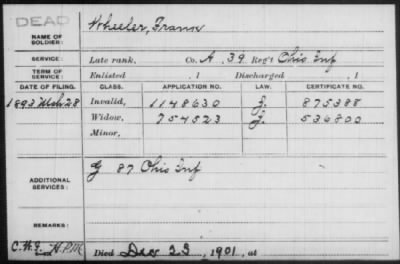 DEAD
NAME OF SOLDIER: Wheeler, Frank
SERVICE: Late rank, Co. A, 39 Reg't Ohio Inf
TERM OF SERVICE: Enlisted , 1 Discharged , 1
DATE OF FILING. CLASS. APPLICATION NO. LAW. CERTIFICATE NO.
1893 Mch 28 Invalid, 1148630 J. 875388
Widow, 754523 J. 536800
Minor,
ADDITIONAL SERVICES: G 87 Ohio Inf
REMARKS:
Died Dec 23, 1901, at